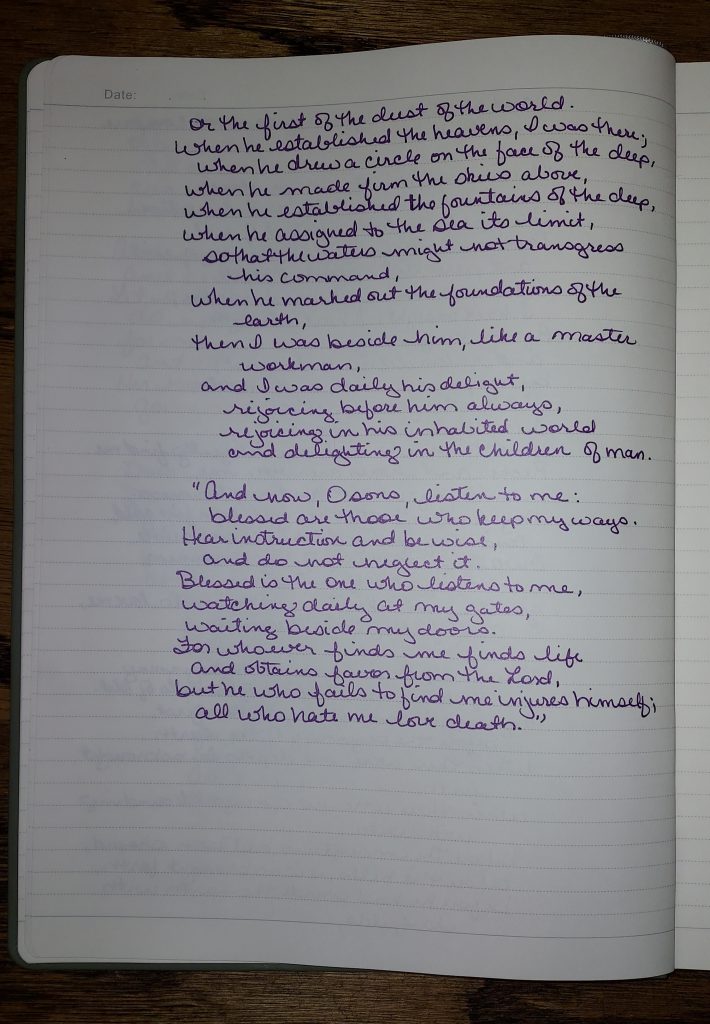 Date:
or the first of the dust of the world.
When he established the heavens, I was there;
when he drew a circle on the face of the deep,
when he made firm the skies above,
when he established the fountains of the deep,
when he assigned to the sea its limit,
so that the waters might not transgress
his command,
when he marked out the foundations of the
earth,
then I was beside him, like a master
workman,
and I was daily his delight,
rejoicing before him always,
rejoicing in his inhabited world
and delighting in the children of man.
"And now, O sons, listen to me:
blessed are those who keep my ways.
Hear instruction and be wise,
and do not neglect it.
Blessed is the one who listens to me,
watching daily at my gates,
waiting beside my doors.
For whoever finds me finds life
and obtains favor from the Lord,
but he who fails to find me injures himself;
all who hate me love death."